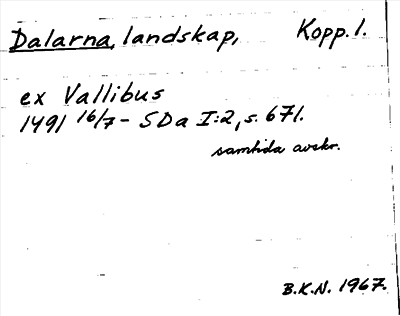 Dalarna, landskap, Kopp. l.
ex Vallibus
1491 16/7 - SDa I:2, s. 671.
samtida avskr.
B.K.N. 1967.